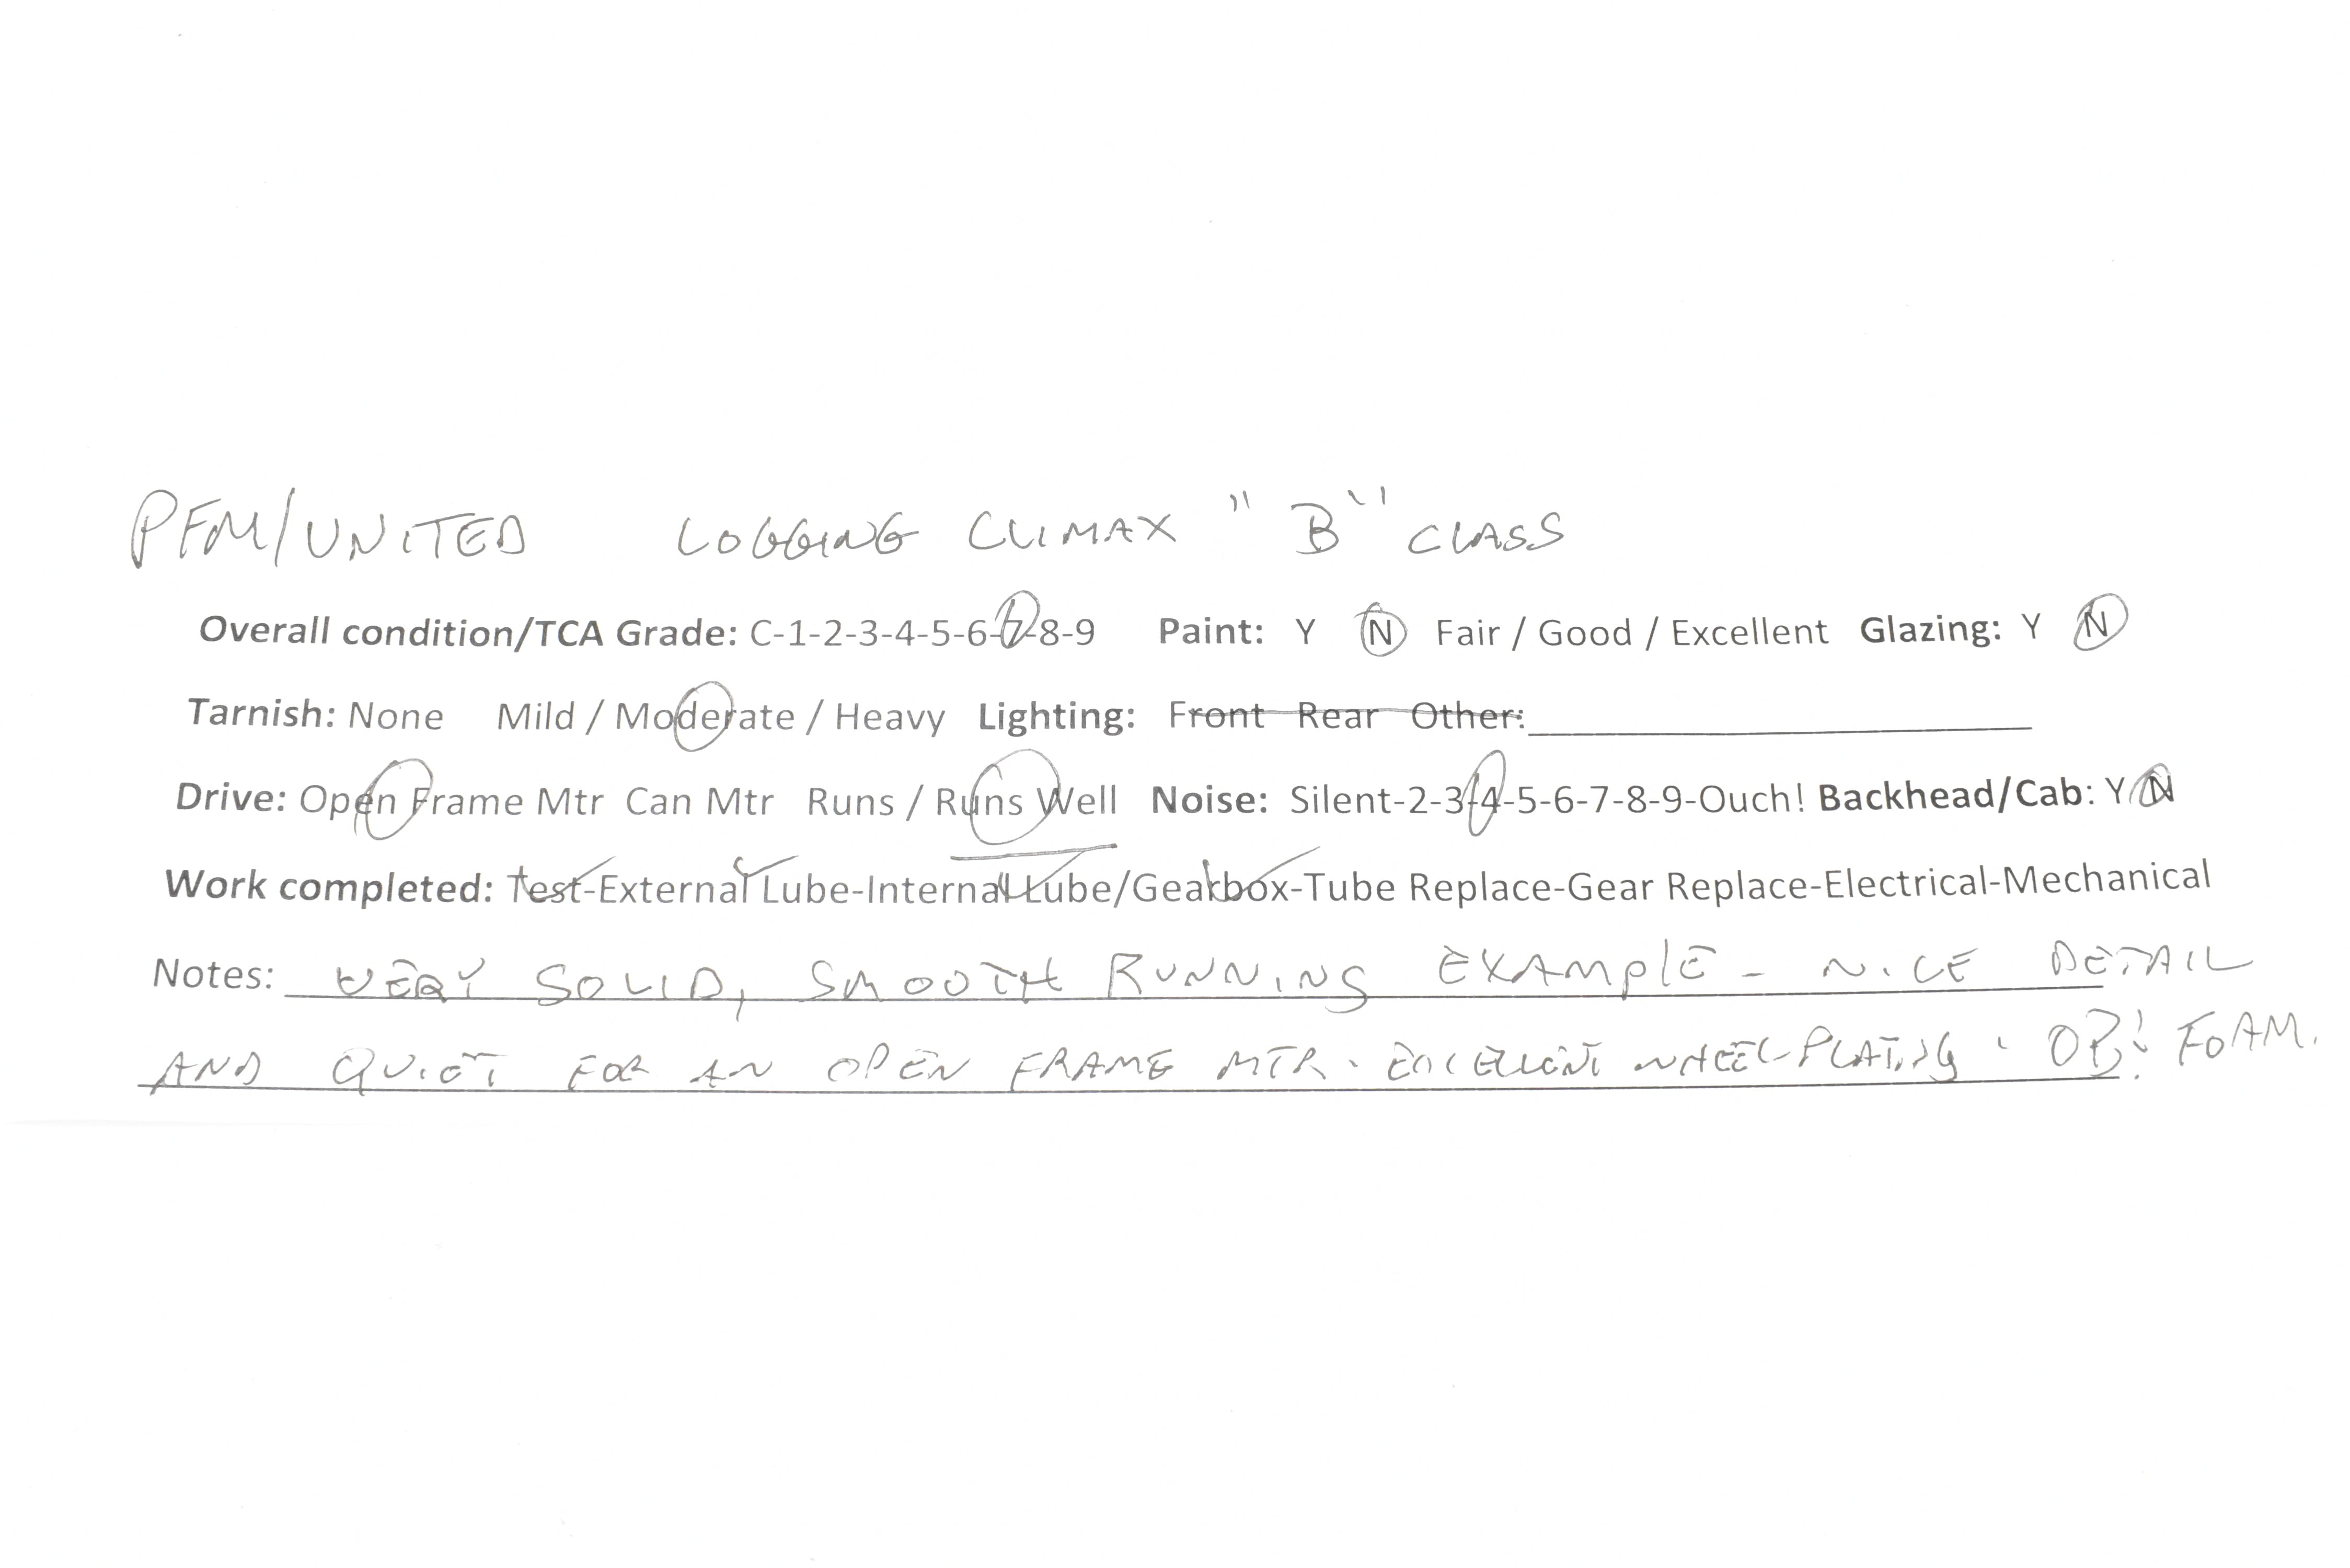 PFM/UNITED LOGGING CLIMAX "B" CLASS
Overall condition/TCA Grade: C-1-2-3-4-5-6-7-8-9 Paint: Y N Fair / Good / Excellent Glazing: Y N
Tarnish: None Mild / Moderate / Heavy Lighting: Front Rear Other:
Drive: Open Frame Mtr Can Mtr Runs / Runs Well Noise: Silent-2-3-4-5-6-7-8-9-Ouch! Backhead/Cab: Y N
Work completed: Test-External Lube-Internal Lube/Gearbox-Tube Replace-Gear Replace-Electrical-Mechanical
Notes: VERY SOLID, SMOOTH RUNNING EXAMPLE - NICE DETAIL
AND QUIET FOR AN OPEN FRAME MTR. EXCELLENT WHEEL PLATING. OB: FOAM.